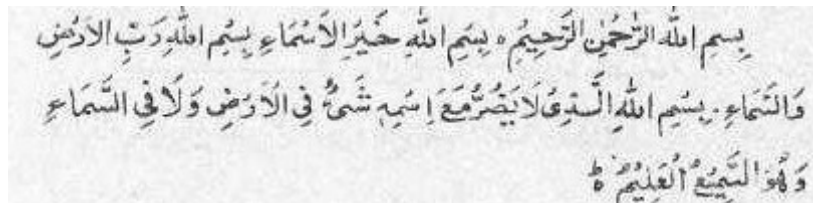 بِسمِ اللهِ الرَّحْمٰنِ الرَّحِيْمِ ۰ بِسْمِ اللهِ خَيْرِ الْاَسْمَاءِ بِسْمِ اللهِ رَبِّ الْاَرْضِ
وَالسَّمَاءِ ۔ بِسْمِ اللهِ الَّذِىْ لَا يَضُرُّ مَعَ اِسْمِهٖ شَىْءٌ فِى الْاَرْضِ وَلَا فِى السَّمَاءِ
وَهُوَ السَّمِيْعُ الْعَلِيْمُ ط